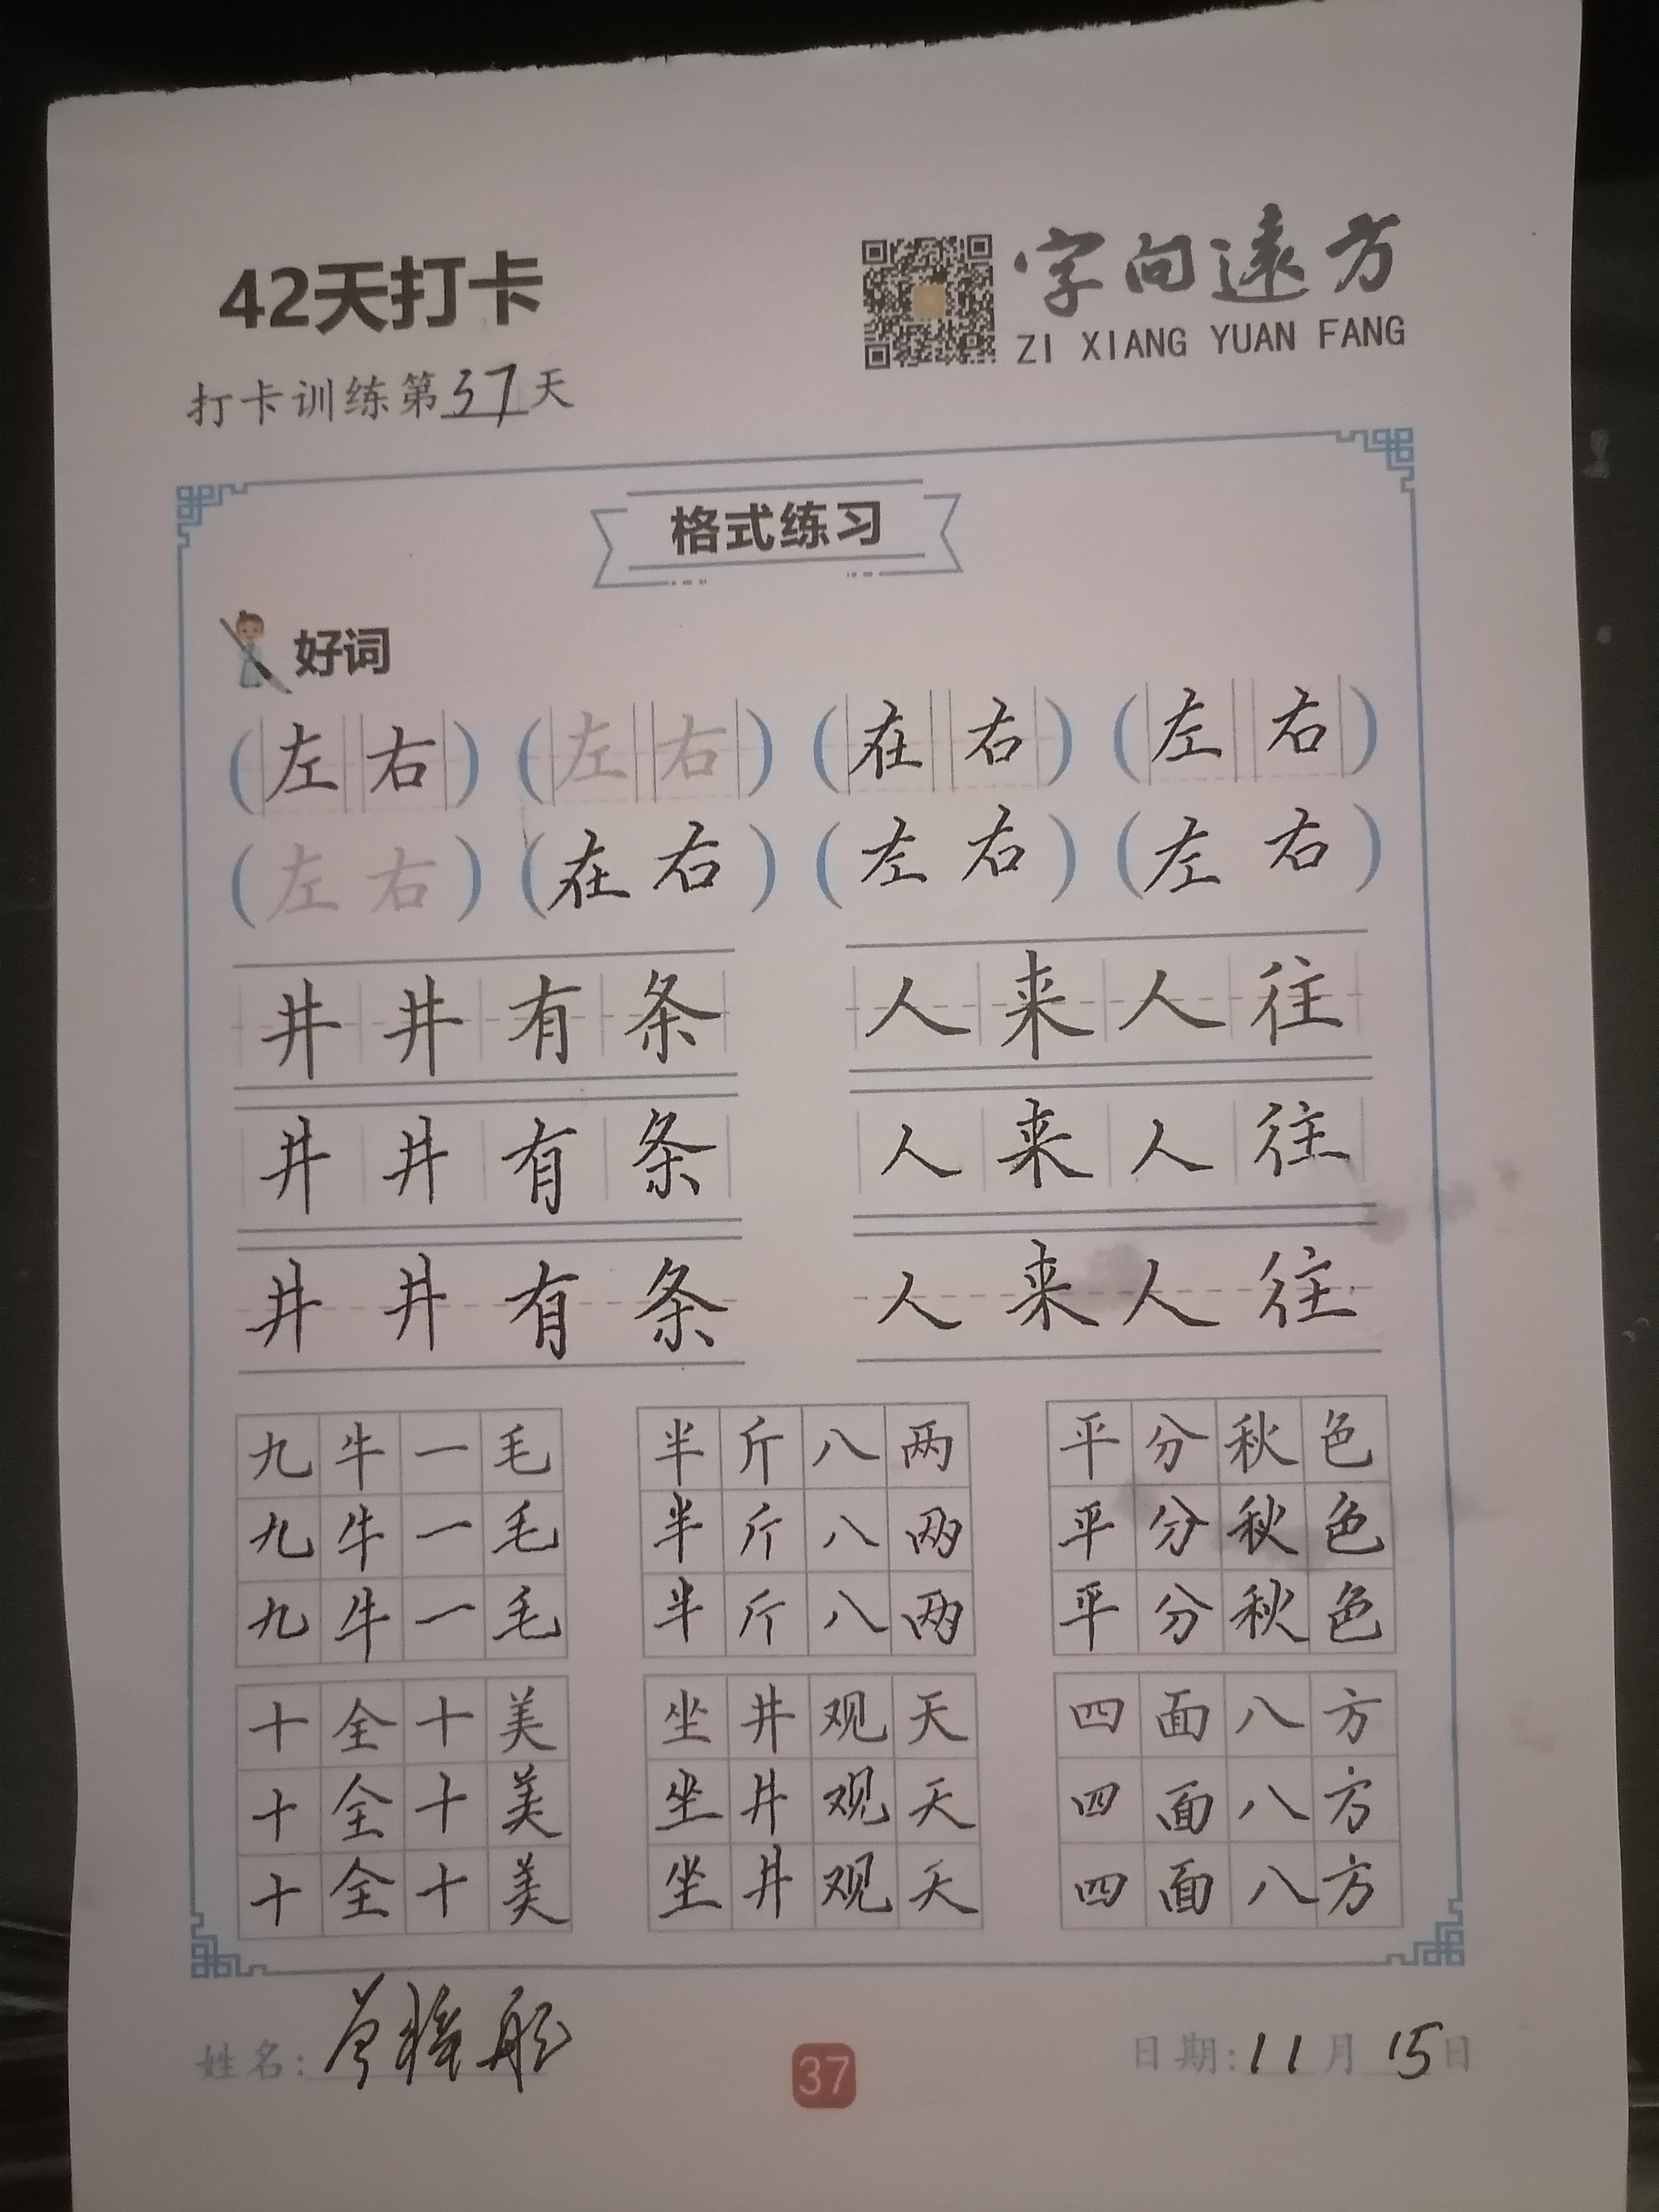 42天打卡
字向遠方
ZI XIANG YUAN FANG
打卡训练第37天
格式练习
好词
(左右) (左右) (在右) (左右)
(左右) (在右) (左右) (左右)
井井有条 人来人往
井井有条 人来人往
井井有条 人来人往
九牛一毛 半斤八两 平分秋色
九牛一毛 半斤八两 平分秋色
九牛一毛 半斤八两 平分秋色
十全十美 坐井观天 四面八方
十全十美 坐井观天 四面八方
十全十美 坐井观天 四面八方
姓名:
37
日期:11月15日